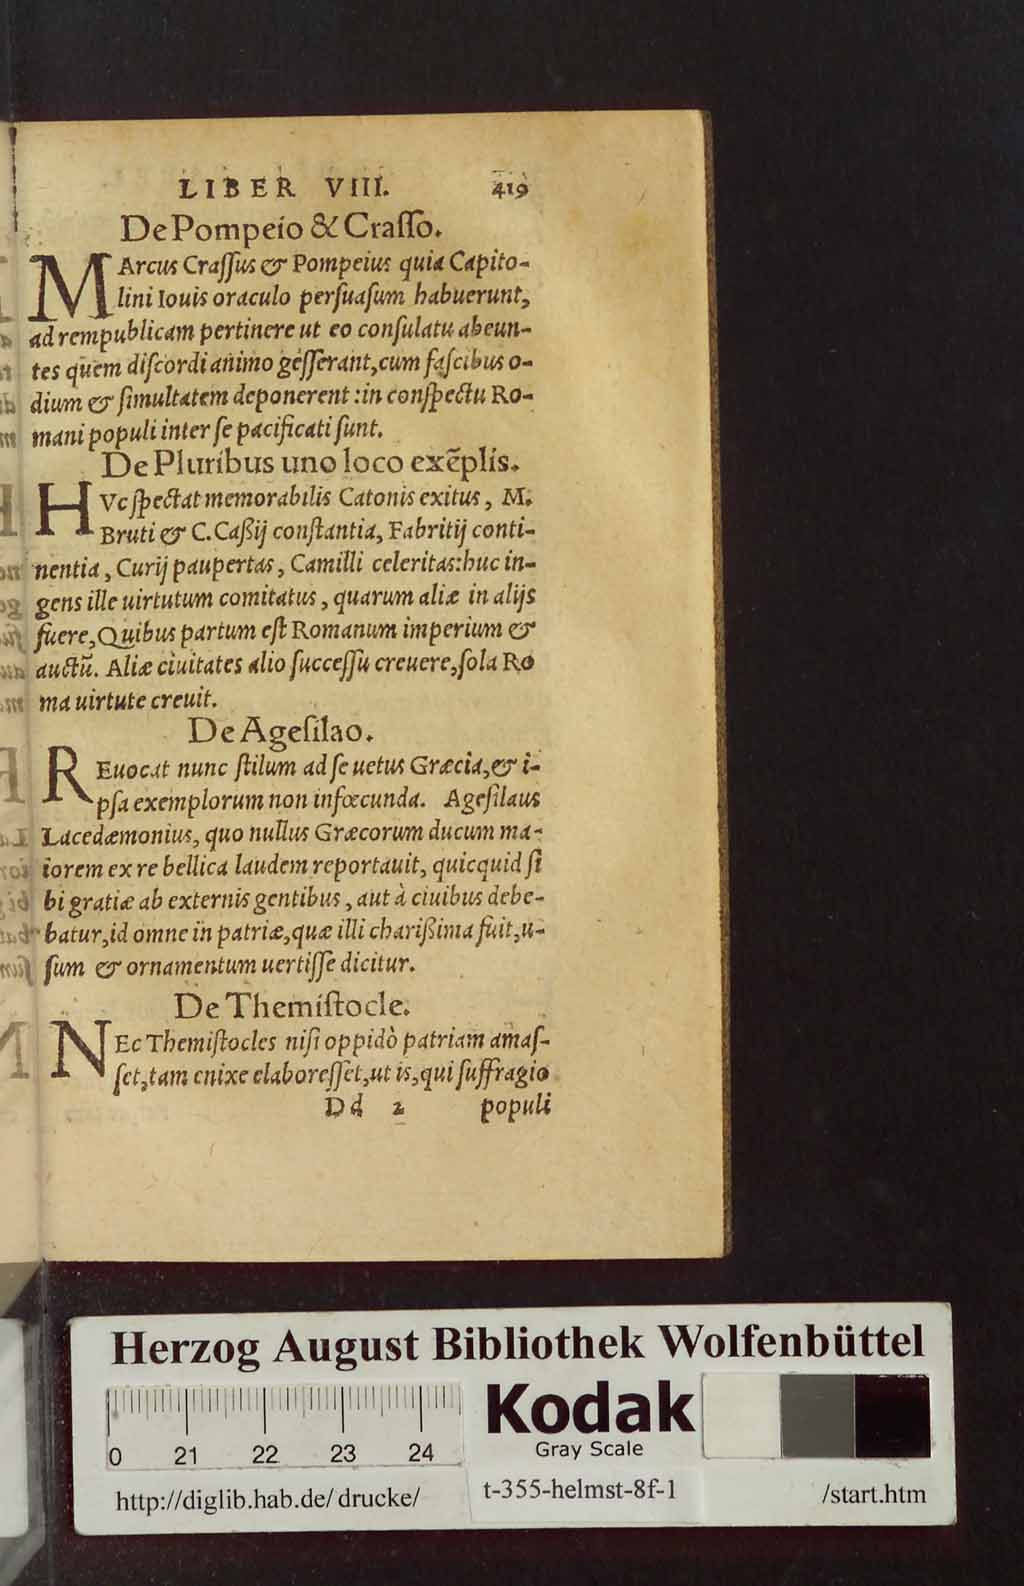 LIBER VIII. 419
De Pompeio & Crasso.
MArcus Crassus & Pompeius quia Capito-
lini Iouis oraculo persuasum habuerunt,
ad rempublicam pertinere ut eo consulatu abeun-
tes quem discordi animo gesserant, cum fascibus o-
dium & simultatem deponerent: in conspectu Ro-
mani populi inter se pacificati sunt.
De Pluribus uno loco exẽplis.
HVc spectat memorabilis Catonis exitus, M.
Bruti & C. Caßij constantia, Fabritij conti-
nentia, Curij paupertas, Camilli celeritas: huc in-
gens ille uirtutum comitatus, quarum aliæ in alijs
fuere, Quibus partum est Romanum imperium &
auctũ. Aliæ ciuitates alio successu creuere, sola Ro
ma uirtute creuit.
De Agesilao.
REuocat nunc stilum ad se uetus Græcia, & i-
psa exemplorum non infœcunda. Agesilaus
Lacedæmonius, quo nullus Græcorum ducum ma-
iorem ex re bellica laudem reportauit, quicquid si
bi gratiæ ab externis gentibus, aut à ciuibus debe-
batur, id omne in patriæ, quæ illi charißima fuit, u-
sum & ornamentum uertisse dicitur.
De Themistocle.
NEc Themistocles nisi oppidò patriam amas-
set, tam enixe elaboresset, ut is, qui suffragio
Dd 2 populi
Herzog August Bibliothek Wolfenbüttel
Kodak
Gray Scale
0 21 22 23 24
http://diglib.hab.de/drucke/ t-355-helmst-8f-1 /start.htm